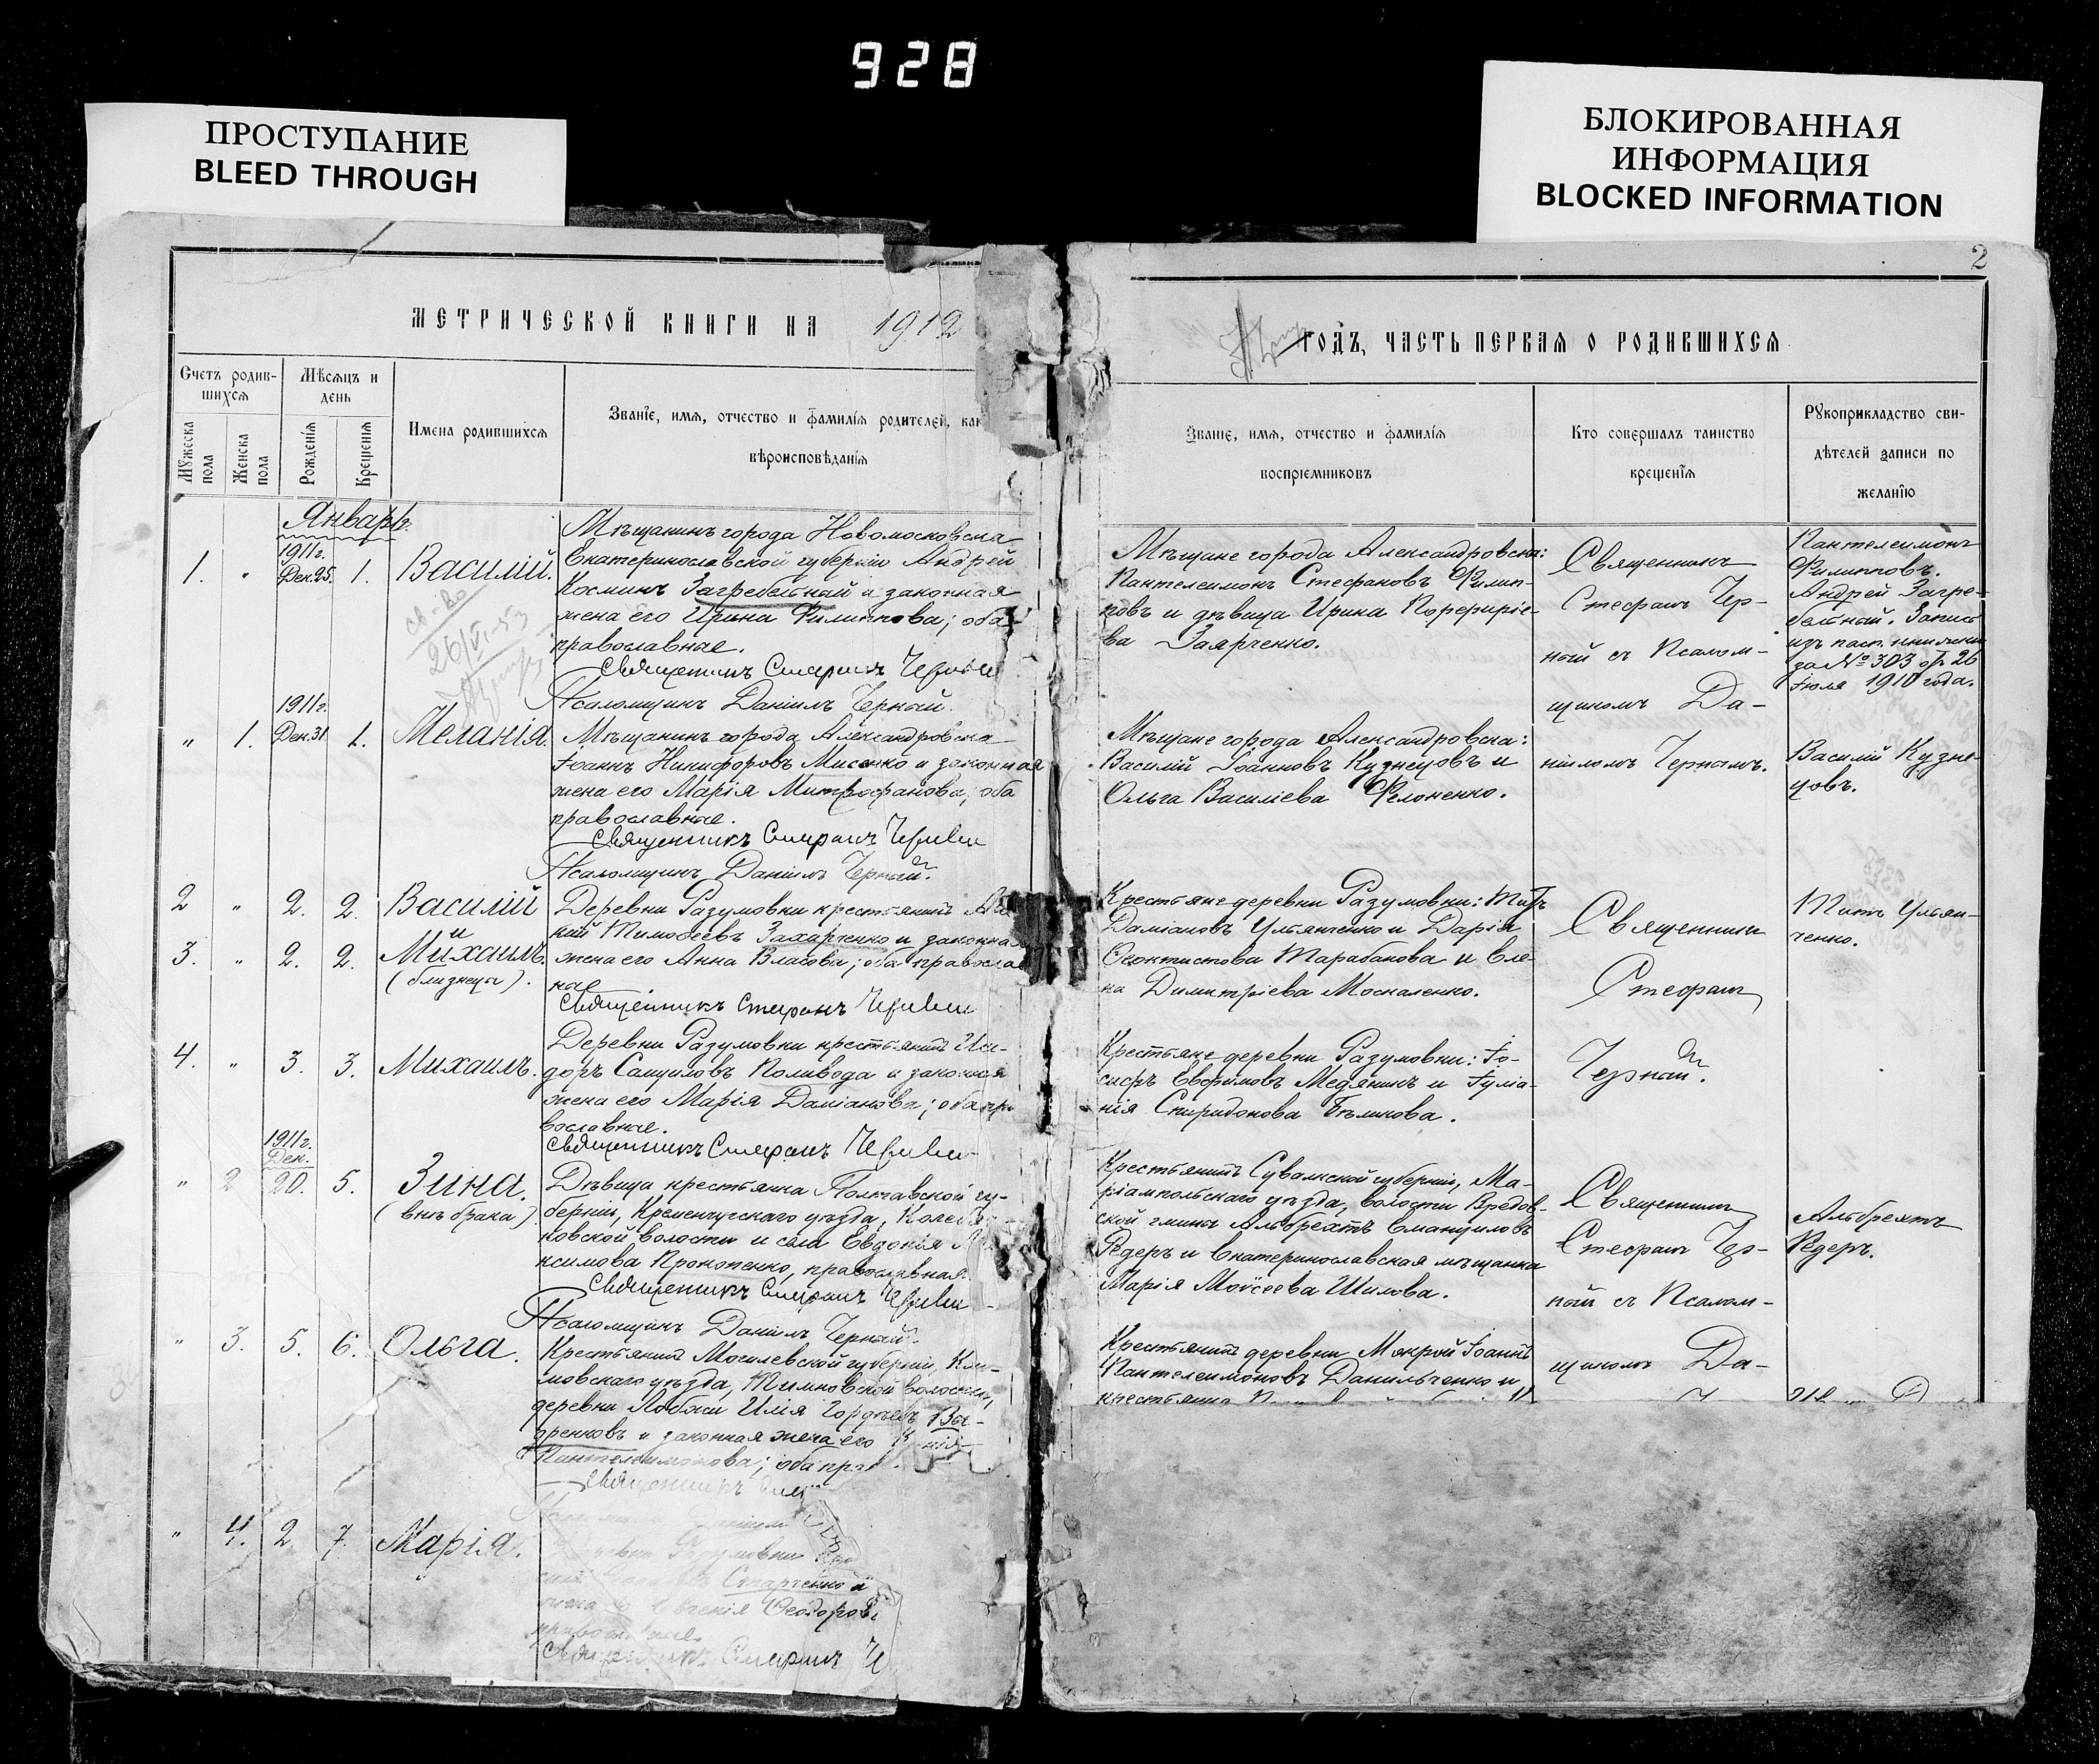 928
ПРОСТУПАНИЕ
BLEED THROUGH
БЛОКИРОВАННАЯ
ИНФОРМАЦИЯ
BLOCKED INFORMATION
2
МЕТРИЧЕСКОЙ КНИГИ НА 1912
ГОДЪ, ЧАСТЬ ПЕРВАЯ О РОДИВШИХСЯ
Счетъ родив-
шихся
Мѣсяцъ и
день
Мужеска
пола
Женска
пола
Рожденія
Крещенія
Имена родившихся
Званіе, имя, отчество и фамилія родителей, как
вѣроисповѣданія
Званіе, имя, отчество и фамилія
воспріемниковъ
Кто совершалъ таинство
крещенія
Рукоприкладство сви-
дѣтелей записи по
желанію
Январь.
1. " 1911 г.
Дек. 25. 1. Василій.
св-во
26/VI-53
Мѣщанинъ города Новомосковска
Екатеринославской губерніи Андрей
Косминъ Загребельный и законная
жена его Ирина Филиппова; оба
православные.
Священникъ Стефанъ Черный
Псаломщикъ Даніилъ Черный.
Мѣщане города Александровска:
Пантелеимонъ Стефановъ Филип-
повъ и дѣвица Ирина Порфиріе-
ва Заярченко.
Священникъ
Стефанъ Чер-
ный съ Псалом-
щикомъ Да-
ніиломъ Чернымъ.
Пантелеимонъ
Филипповъ.
Андрей Загре-
бельный. Запись
изъ пасп. книжки
за № 303 отъ 26
Іюля 1910 года.
" 1. 1911 г.
Дек. 31. 1. Меланія.
Мѣщанинъ города Александровска
Іоаннъ Никифоровъ Мисенко и законная
жена его Марія Митрофанова; оба
православные.
Священникъ Стефанъ Черный
Псаломщикъ Даніилъ Черный.
Мѣщане города Александровска:
Василій Іоанновъ Кузнецовъ и
Ольга Василіева Фелоненко.
Василій Кузне-
цовъ.
2 " 2. 2. Василій
и
3. " 2. 2. Михаилъ.
(близнецы).
Деревни Разумовки крестьянинъ
кій Тимофеевъ Захарченко и законная
жена его Анна Власова; оба правосла
ные
Священникъ Стефанъ Черный
Крестьяне деревни Разумовки: Титъ
Даміановъ Ульянченко и Дарія
Феоктистова Тарабанова и Еле-
на Димитріева Москаленко.
Священникъ
Стефанъ
Черный.
Титъ Ульян-
ченко.
4. " 3. 3. Михаилъ.
Деревни Разумовки крестьянинъ Иси-
доръ Самуиловъ Поливода и законная
жена его Марія Даміанова; оба пра
вославные.
Священникъ Стефанъ Черный
Крестьяне деревни Разумовки: Іо-
сифъ Евфимовъ Медяникъ и Іуліа-
нія Спиридонова Бѣликова.
" 2 1911 г.
Дек.
20. 5. Зина.
(внѣ брака)
Дѣвица крестьянка Полтавской гу-
берніи, Кременчугскаго уѣзда,
ковской волости и села Евдокія Ма
ксимова Прокопенко, православная.
Священникъ Стефанъ Черный
Псаломщикъ Даніилъ Черный.
Крестьянинъ Сувалкской губерніи, Ма-
ріампольскаго уѣзда, волости
ской гмины Альбрехтъ Емануиловъ
Редеръ и Екатеринославская мѣщанка
Марія Моѵсеева Шилова.
Священникъ
Стефанъ Чер-
ный съ Псалом-
щикомъ Да-
Альбрехтъ
Редеръ.
" 3. 5. 6. Ольга.
Крестьянинъ Могилевской губерніи, Кли-
мовскаго уѣзда, волости,
деревни Лобжи Илія Гордѣевъ Вы-
дренковъ и законная жена его
Пантелеимонова; оба прав
Священникъ
Крестьянинъ деревни Мокрой Іоаннъ
Пантелеимоновъ Данильченко и
крестьянка
" 4. 2 7. Марія.
деревни Разумовки
Старченко и
жена его Евгенія Феодорова
православные.
Священникъ Стефанъ Ч